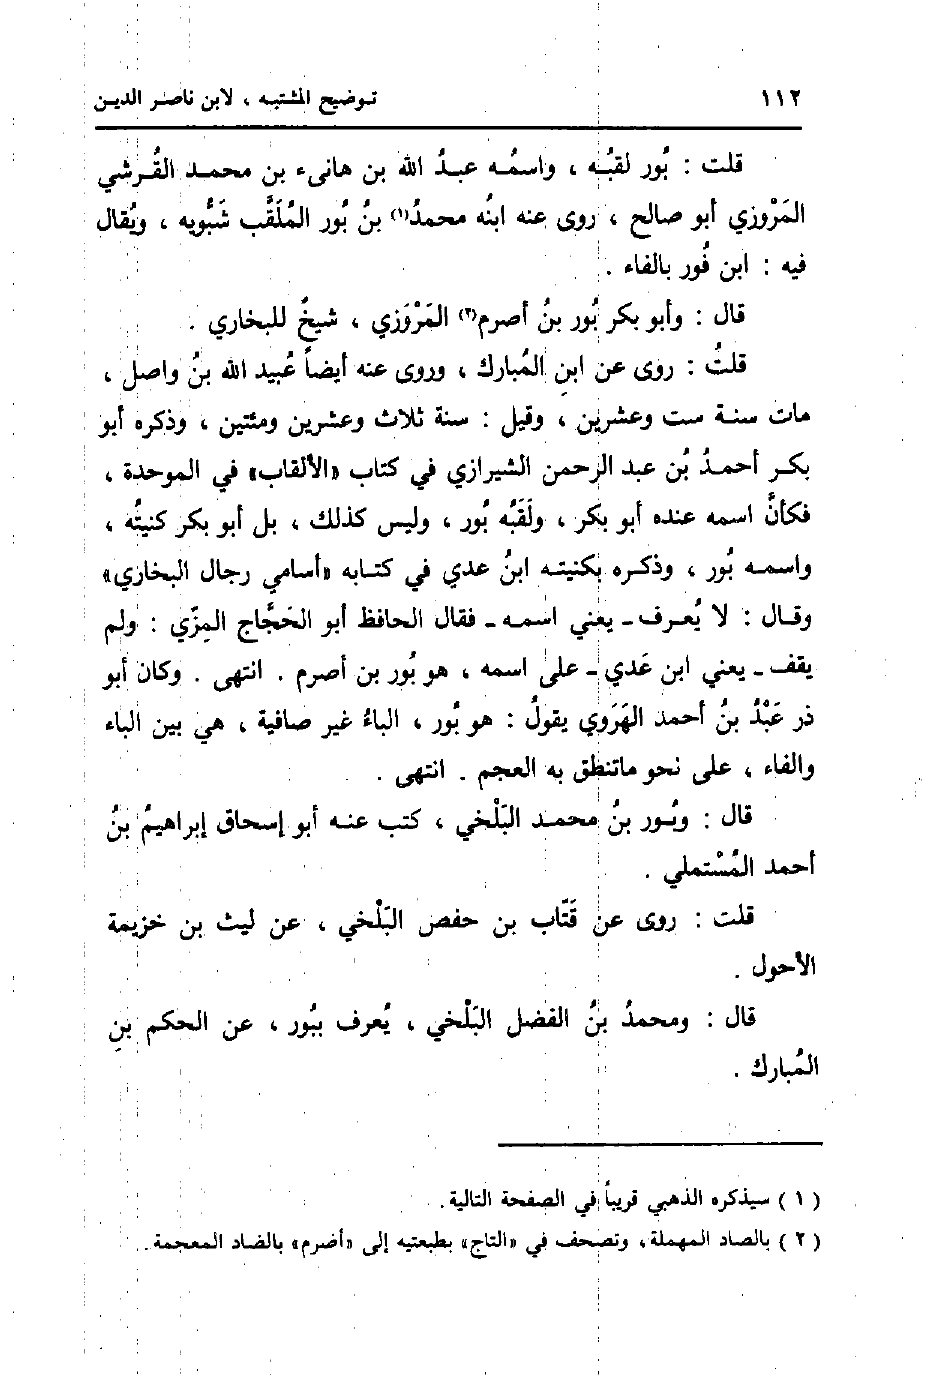 ١١٢ توضيح المشتبه ، لابن ناصر الدين
قلت : بُور لقبُه ، واسمُه عبدُ الله بن هانىء بن محمد القُرشي
المَرْوزي أبو صالح ، روى عنه ابنُه محمدُ(١) بنُ بُور المُلَقَّب شَبُّويه ، ويُقال
فيه : ابن فُور بالفاء .
قال : وأبو بكر بُور بنُ أصرم(٢) المَرْوَزي ، شيخُ للبخاري .
قلتُ : روى عن ابنِ المُبارك ، وروى عنه أيضاً عُبيد الله بنُ واصل ،
مات سنة ست وعشرين ، وقيل : سنة ثلاث وعشرين ومئتين ، وذكره أبو
بكر أحمدُ بُن عبد الرحمن الشيرازي في كتاب «الألقاب» في الموحدة ،
فكأنَّ اسمه عنده أبو بكر ، ولَقَبُه بُور ، وليس كذلك ، بل أبو بكر كنيتُه ،
واسمه بُور ، وذكره بكنيته ابنُ عدي في كتابه «أسامي رجال البخاري»
وقال : لا يُعرف ـ يعني اسمه ـ فقال الحافظ أبو الحَجَّاج المِزّي : ولم
يقف ـ يعني ابن عَدي ـ على اسمه ، هو بُور بن أصرم . انتهى . وكان أبو
ذر عَبْدُ بنُ أحمد الهَرَوي يقولُ : هو بُور ، الباءُ غير صافية ، هي بين الباء
والفاء ، على نحو ماتنطق به العجم . انتهى .
قال : وبُور بنُ محمد البَلْخي ، كتب عنه أبو إسحاق إبراهيمُ بنُ
أحمد المُسْتملي .
قلت : روى عن قَتّاب بن حفص البَلْخي ، عن ليث بن خزيمة
الأحول .
قال : ومحمدُ بنُ الفضل البَلْخي ، يُعرف ببُور ، عن الحكم بنِ
المُبارك .
( ١ ) سيذكره الذهبي قريباً في الصفحة التالية .
( ٢ ) بالصاد المهملة ، وتصحف في «التاج» بطبعتيه إلى «أضرم» بالضاد المعجمة .